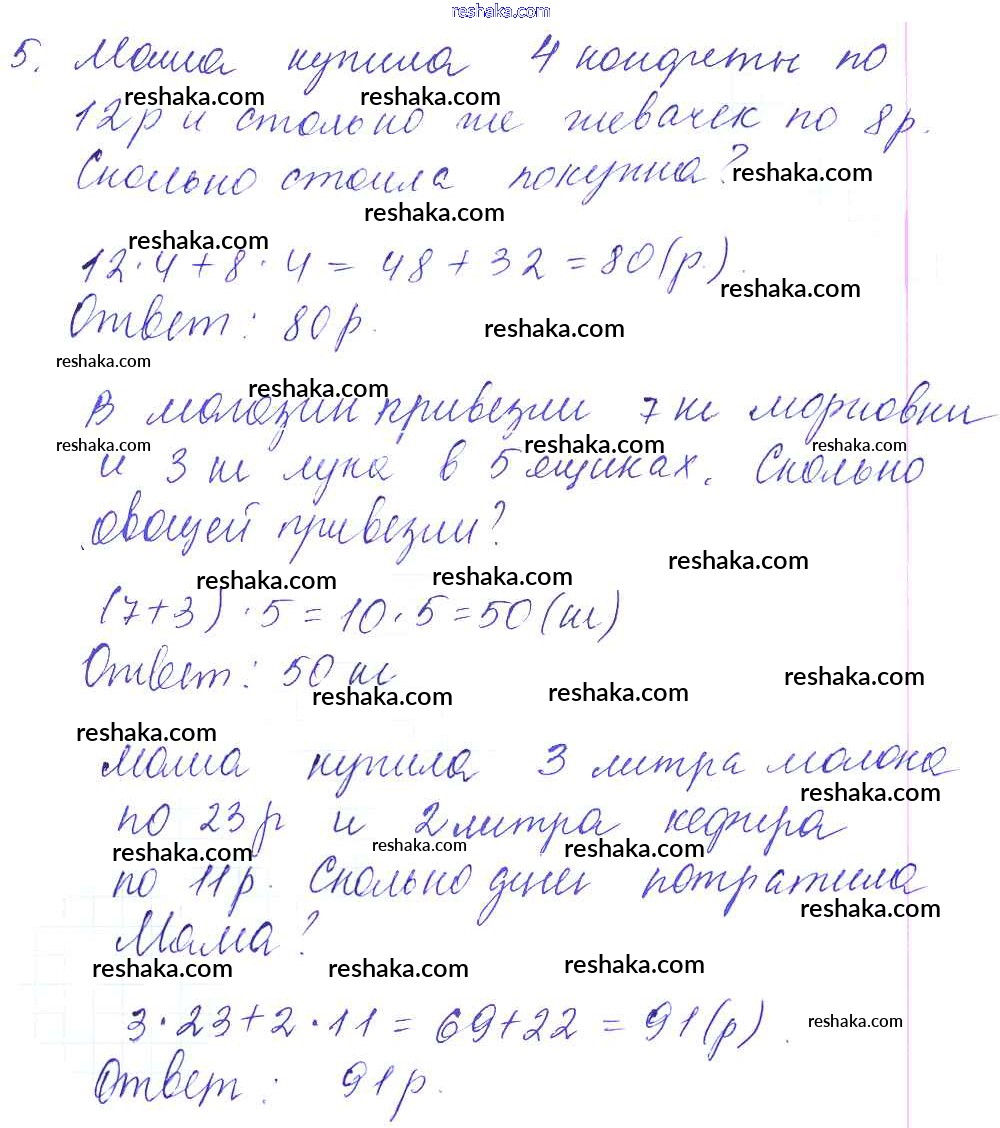 reshaka.com
5. Маша купила 4 конфеты по
reshaka.com reshaka.com
12р и столько же жевачек по 8р.
Сколько стоила покупка? reshaka.com
reshaka.com
reshaka.com
12·4+8·4=48+32=80(р.).
reshaka.com
Ответ: 80р.
reshaka.com
reshaka.com
reshaka.com
В магазин привезли 7кг морковки
reshaka.com reshaka.com reshaka.com
и 3кг лука в 5 ящиках. Сколько
овощей привезли?
reshaka.com
reshaka.com reshaka.com
(7+3)·5=10·5=50(кг)
Ответ: 50кг
reshaka.com reshaka.com reshaka.com
reshaka.com
Маша купила 3 литра молока
reshaka.com
по 23р и 2литра кефира
reshaka.com reshaka.com reshaka.com
по 11р. Сколько денег потратила
reshaka.com
Мама?
reshaka.com reshaka.com reshaka.com
3·23+2·11=69+22=91(р).
reshaka.com
Ответ: 91р.